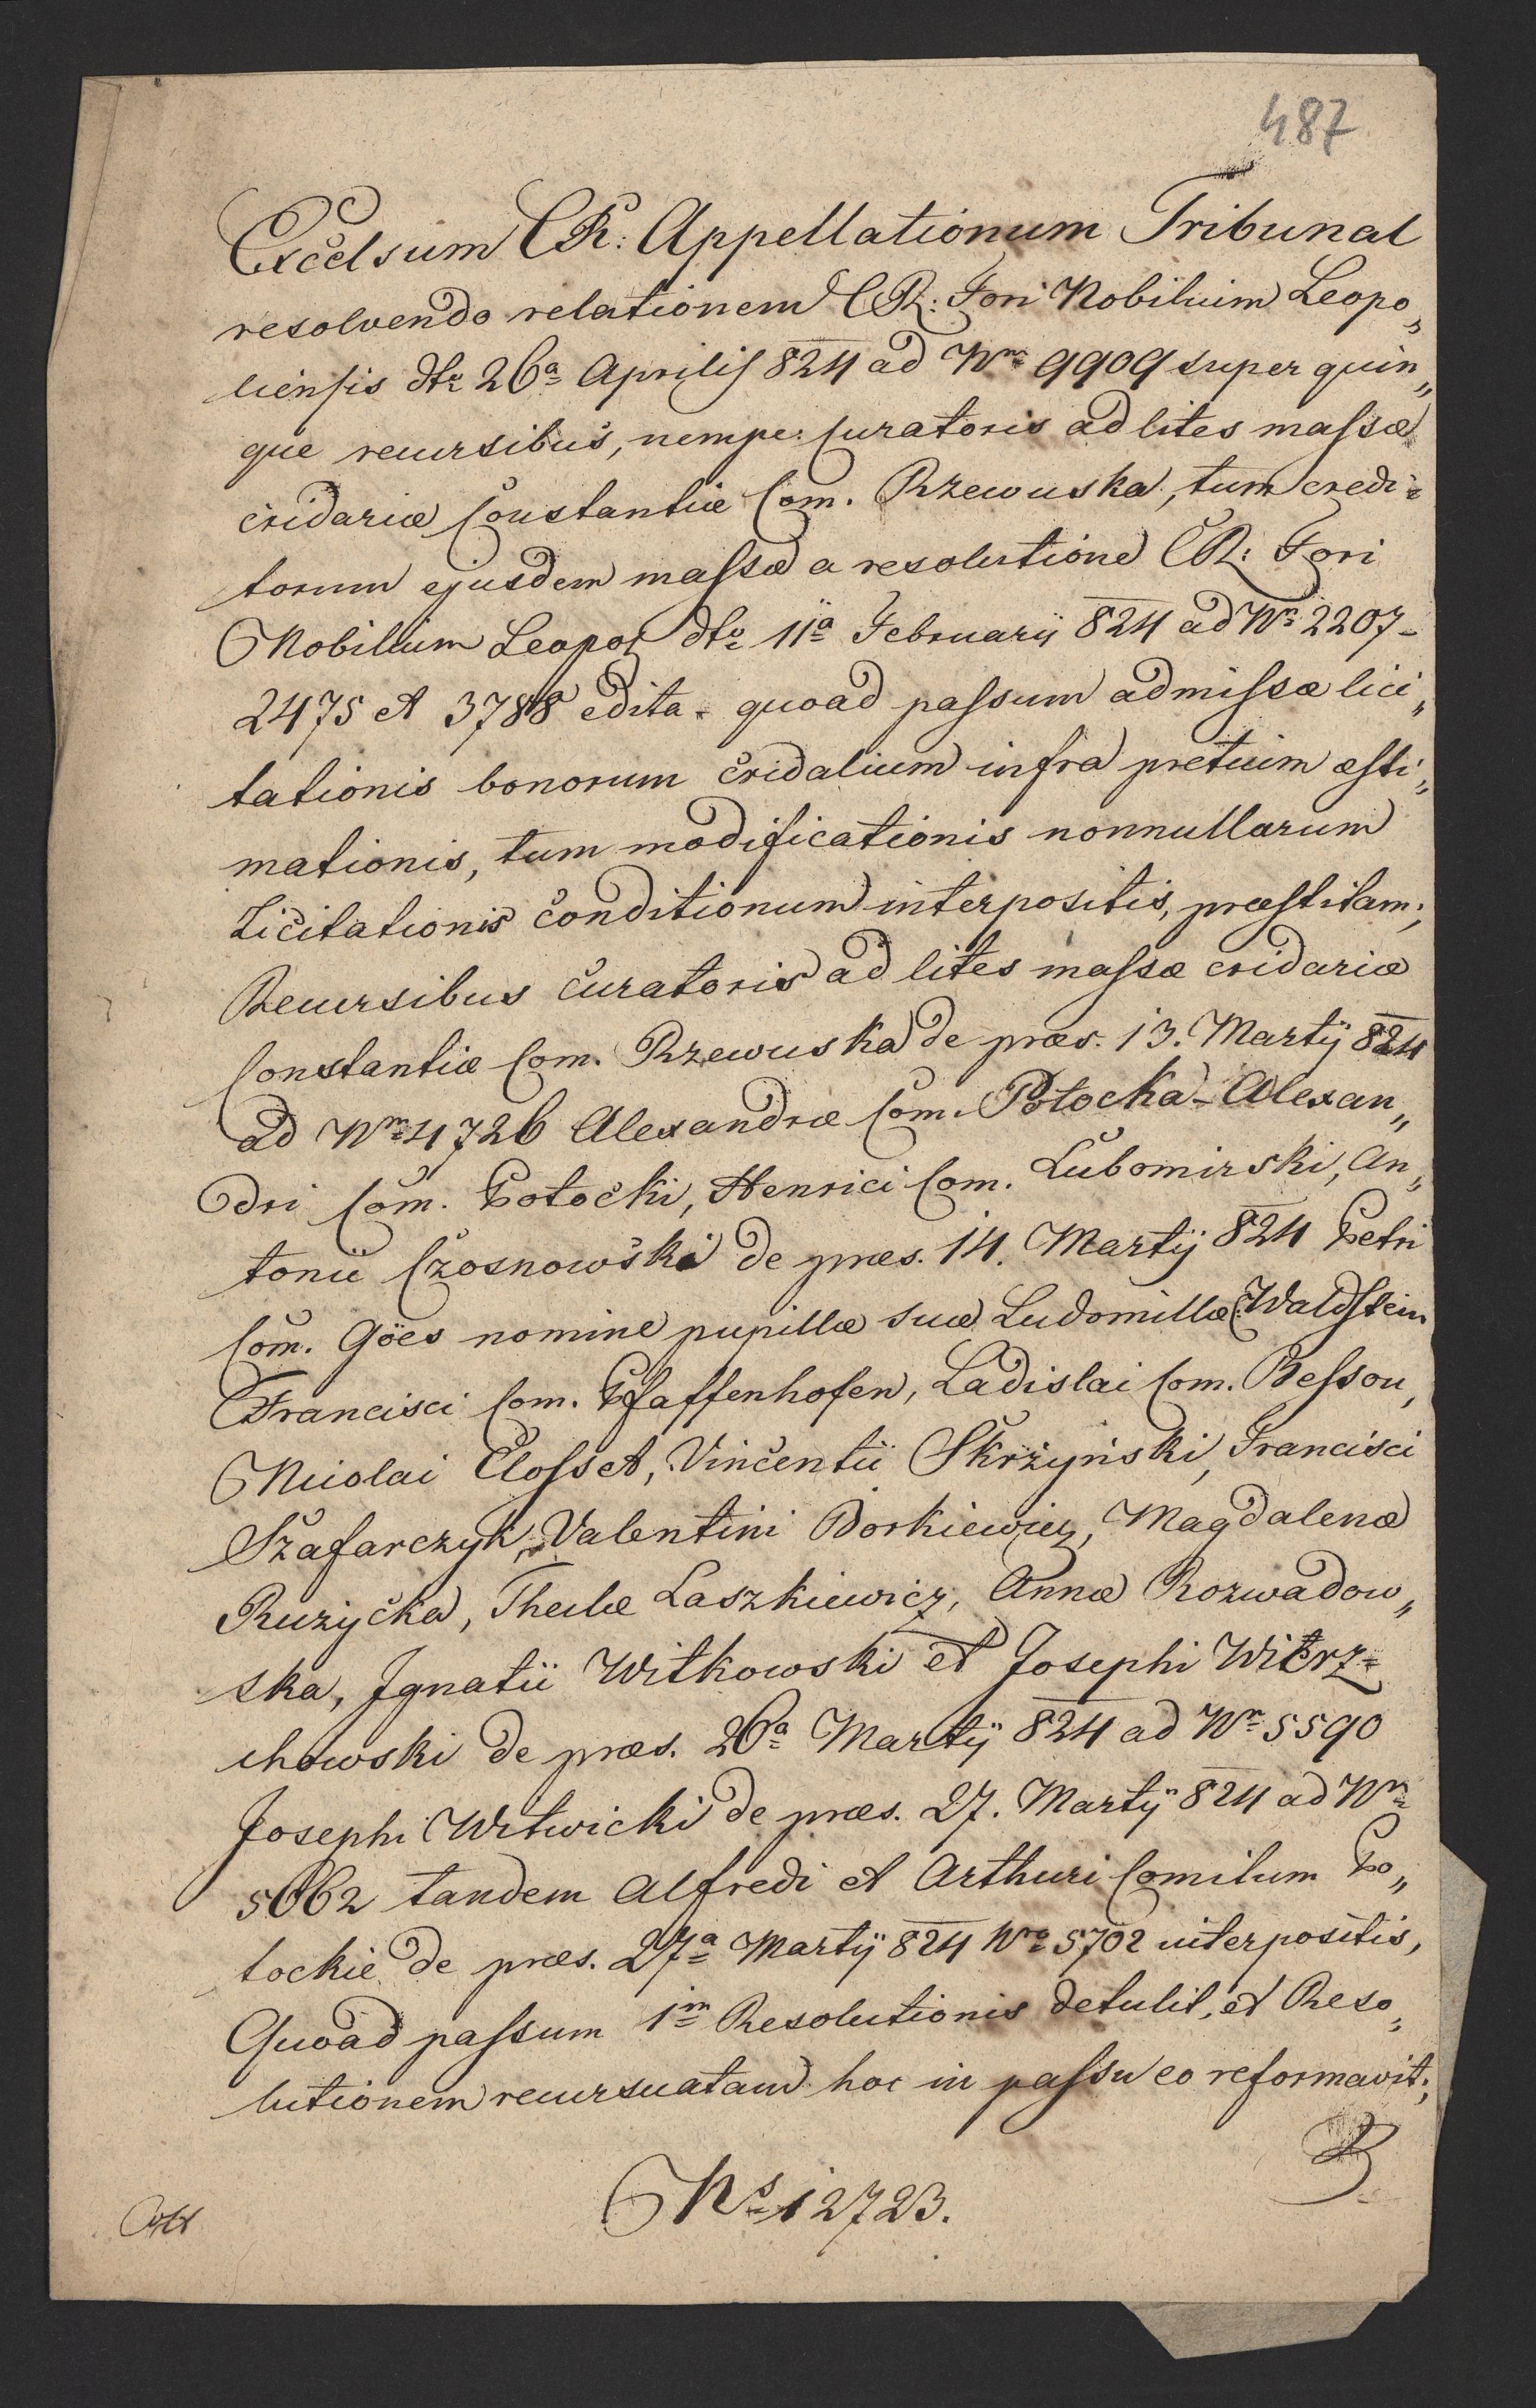 487
Excelsum CR: Appellationum Tribunal
resolvendo relationem CR: Fori Nobilium Leopo„
liensis dto 26a Aprilis 824 ad Nrm 9909 super quin„
que recursibus, nempe: Curatoris ad lites massæ
cridariæ Constantiæ Com. Rzewuska, tum credi=
torum ejusdem massæ a resolutione CR: Fori
Nobilium Leopol dto 11a Februarij 824 ad Nr 2207-
2475 et 3788 edita - quoad passum admissæ lici„
tationis bonorum cridalium infra pretium æsti„
mationis, tum modificationis nonnullarum
Licitationis conditionum interpositis, præstitam;
Recursibus curatoris ad lites massæ cridariæ
Constantiæ Com. Rzewuska de præs. 13. Martij 824
ad Nrm 4726 Alexandræ Com. Potocka - Alexan„
dri Com. Potocki, Henrici Com. Lubomirski, An„
tonii Czosnowski de præs. 14. Martij 824 Petri
Com. Göes nomine pupillæ suæ Ludomillæ C. Waldstein
Francisci Com. Pfaffenhofen, Ladislai Com. Bessou,
Nicolai Closset, Vincentii Skrzyński, Francisci
Szafarczyk, Valentini Borkiewicz, Magdalenæ
Ruzycka, Theclæ Laszkiewicz, Annæ Rozwadow„
ska, Ignatii Witkowski et Josephi Wierz=
chowski de præs. 26a Martij 824 ad Nr 5590
Josephi Witwicki de præs. 27. Martij 824 ad Nrm
5662 tandem Alfredi et Arthuri Comitum Po„
tockie de præs. 27a Martij 824 Nro 5702 interpositis,
Quoad passum 1m Resolutionis detulit, et Reso„
lutionem recursuatam hoc in passu eo reformavit;
No 12723.